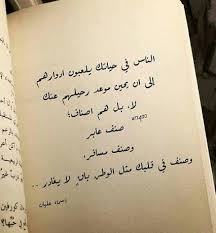 الناس في حياتك يلعبون ادوارهم
إلى ان يحين موعد رحيلهم عنك
لا، بل هم اصناف؛
صنف عابر
وصنف مسافر،
وصنف في قلبك مثل الوطن باقٍ لا يغادر ..
اسماء عليان